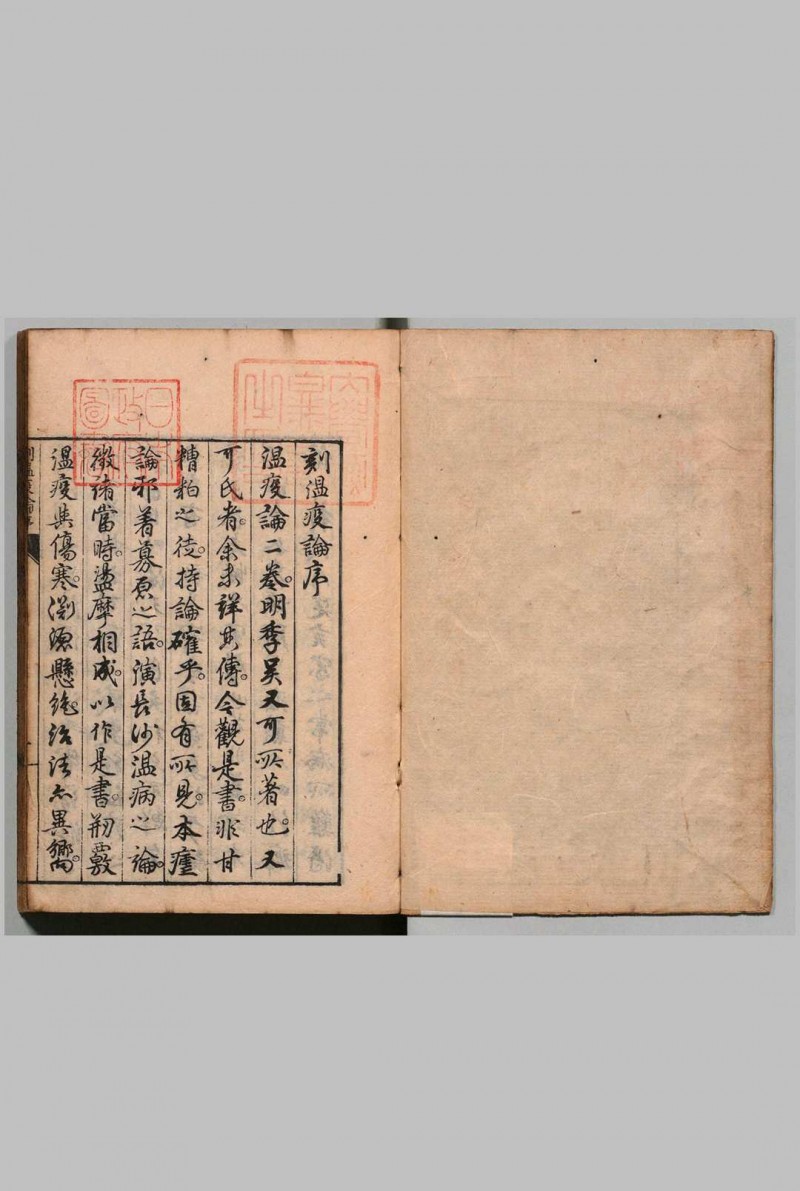 刻溫疫論序
溫疫論二卷。明季吳又可所著也。又
可氏者。余未詳其傳。今觀是書。非甘
糟粕之徒。持論確乎。固有所見。本瘧
論邪著募原之語。演長沙溫病之論。
徵諸當時。盪摩相成。以作是書。剏覈
溫疫與傷寒。淵源懸絶。治法亦異嚮。